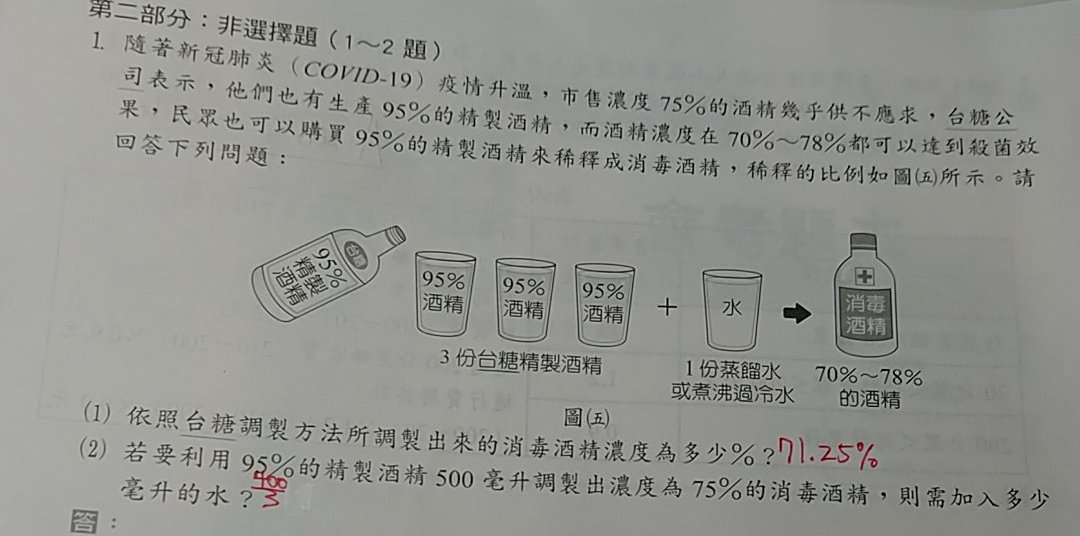 第二部分：非選擇題（1～2 題）
1. 隨著新冠肺炎（COVID-19）疫情升溫，市售濃度 75%的酒精幾乎供不應求，台糖公
司表示，他們也有生產 95%的精製酒精，而酒精濃度在 70%～78%都可以達到殺菌效
果，民眾也可以購買 95%的精製酒精來稀釋成消毒酒精，稀釋的比例如圖㈤所示。請
回答下列問題：
台糖
95%
精製
酒精
95%
酒精
95%
酒精
95%
酒精
＋
水
消毒
酒精
3 份台糖精製酒精
1 份蒸餾水
或煮沸過冷水
70%～78%
的酒精
圖㈤
(1) 依照台糖調製方法所調製出來的消毒酒精濃度為多少%？71.25%
(2) 若要利用 95%的精製酒精 500 毫升調製出濃度為 75%的消毒酒精，則需加入多少
毫升的水？400/3
答：